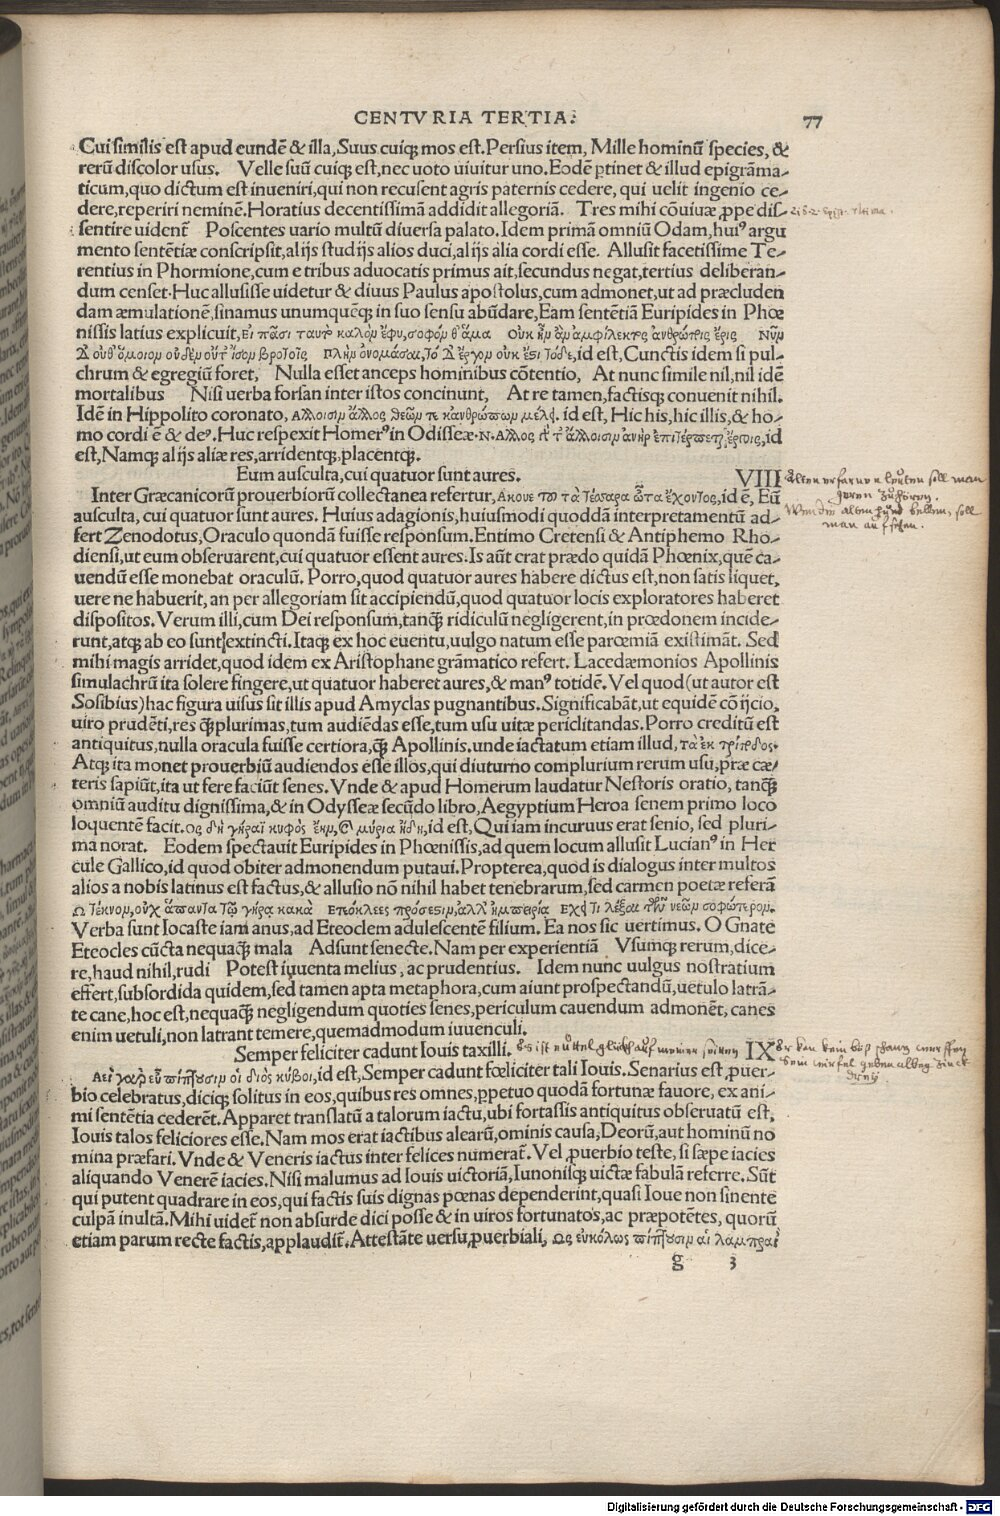 CENTVRIA TERTIA. 77
Cui similis est apud eundē & illa, Suus cuiq; mos est. Persius item, Mille hominū species, &
rerū discolor usus. Velle suū cuiq; est, nec uoto uiuitur uno. Eodē ꝑtinet & illud epigrāma-
ticum, quo dictum est inueniri, qui non recusent agris paternis cedere, qui uelit ingenio ce-
dere, reperiri neminē. Horatius decentissimā addidit allegoriā. Tres mihi cōuiuæ ꝓpe dis-
sentire uidenť Poscentes uario multū diuersa palato. Idem primā omniū Odam, huiꝰ argu
mento sentētiæ conscripsit, alijs studijs alios duci, alijs alia cordi esse. Allusit facetissime Te-
rentius in Phormione, cum e tribus aduocatis primus ait, secundus negat, tertius deliberan-
dum censet. Huc allusisse uidetur & diuus Paulus apostolus, cum admonet, ut ad præcluden
dam æmulationē, sinamus unumquēq; in suo sensu abūdare, Eam sentētiā Euripides in Phœ
nissis latius explicuit, Εἰ πᾶσι ταυτὸ καλὸν ἔφυ, σοφόν θ' ἅμα Οὐκ ἦν ἂν ἀμφίλεκτος ἀνθρώποις ἔρις Νῦν
δ' οὐθ' ὅμοιον οὐδὲν οὔτ' ἴσον βροτοῖς Πλὴν ὀνομάσαι, τὸ δ' ἔργον οὐκ ἔστι τόδε, id est, Cunctis idem si pul-
chrum & egregiū foret, Nulla esset anceps hominibus cōtentio, At nunc simile nil, nil idē
mortalibus Nisi uerba forsan inter istos concinunt, At re tamen, factisq; conuenit nihil.
Idē in Hippolito coronato, Ἄλλοισιν ἄλλος θεῶν τε κἀνθρώπων μέλει. id est, Hic his, hic illis, & ho-
mo cordi ē & deꝰ. Huc respexit Homerꝰ in Odisseæ. Ν. Ἄλλος γάρ τ' ἄλλοισιν ἀνὴρ ἐπιτέρπεται ἔργοις, id
est, Namq; alijs aliæ res, arridentq; placentq;.
Eum ausculta, cui quatuor sunt aures. VIII
Inter Græcanicorū prouerbiorū collectanea refertur, Ἄκουε τοῦ τὰ τέσσαρα ὦτα ἔχοντος, id ē, Eū
ausculta, cui quatuor sunt aures. Huius adagionis, huiusmodi quoddā interpretamentū ad-
fert Zenodotus, Oraculo quondā fuisse responsum. Entimo Cretensi & Antiphemo Rho-
diensi, ut eum obseruarent, cui quatuor essent aures. Is aūt erat prædo quidā Phœnix, quē ca-
uendū esse monebat oraculū. Porro, quod quatuor aures habere dictus est, non satis liquet,
uere ne habuerit, an per allegoriam sit accipiendū, quod quatuor locis exploratores haberet
dispositos. Verum illi, cum Dei responsum, tanq̄ ridiculū negligerent, in prœdonem incide-
runt, atq; ab eo sunt extincti. Itaq; ex hoc euentu, uulgo natum esse parœmiā existimāt. Sed
mihi magis arridet, quod idem ex Aristophane grāmatico refert. Lacedæmonios Apollinis
simulachrū ita solere fingere, ut quatuor haberet aures, & manꝰ totidē. Vel quod (ut autor est
Sosibius) hac figura uisus sit illis apud Amyclas pugnantibus. Significabāt, ut equidē cōijcio,
uiro prudēti, res q̄plurimas, tum audiēdas esse, tum usu uitæ periclitandas. Porro creditū est
antiquitus, nulla oracula fuisse certiora, q̄ Apollinis. unde iactatum etiam illud, τὰ ἐκ τρίποδος.
Atq; ita monet prouerbiū audiendos esse illos, qui diuturno complurium rerum usu, præ cæ-
teris sapiūt, ita ut fere faciūt senes. Vnde & apud Homerum laudatur Nestoris oratio, tanq̄
omniū auditu dignissima, & in Odysseæ secūdo libro, Aegyptium Heroa senem primo loco
loquentē facit. Ὃς δὴ γήραϊ κυφὸς ἔην, καὶ μύρια ᾔδη, id est, Qui iam incuruus erat senio, sed pluri-
ma norat. Eodem spectauit Euripides in Phœnissis, ad quem locum allusit Lucianꝰ in Her
cule Gallico, id quod obiter admonendum putaui. Propterea, quod is dialogus inter multos
alios a nobis latinus est factus, & allusio nō nihil habet tenebrarum, sed carmen poetæ referā
Ὦ τέκνον, οὐχ ἅπαντα τῷ γήρᾳ κακὰ Ἐτεόκλεες πρόσεστιν, ἀλλ' ἡμπειρία Ἔχει τι λέξαι τῶν νεῶν σοφώτερον.
Verba sunt Iocaste iam anus, ad Eteoclem adulescentē filium. Ea nos sic uertimus. O Gnate
Eteocles cūcta nequaq̄ mala Adsunt senecte. Nam per experientiā Vsumq; rerum, dice-
re, haud nihil, rudi Potest iuuenta melius, ac prudentius. Idem nunc uulgus nostratium
effert, subsordida quidem, sed tamen apta metaphora, cum aiunt prospectandū, uetulo latrā-
te cane, hoc est, nequaq̄ negligendum quoties senes, periculum cauendum admonēt, canes
enim uetuli, non latrant temere, quemadmodum iuuenculi.
Semper feliciter cadunt Iouis taxilli. IX
Ἀεὶ γὰρ εὖ πίπτουσιν οἱ διὸς κύβοι, id est, Semper cadunt fœliciter tali Iouis. Senarius est ꝓuer-
bio celebratus, diciq; solitus in eos, quibus res omnes, ꝑpetuo quodā fortunæ fauore, ex ani-
mi sentētia cederēt. Apparet translatū a talorum iactu, ubi fortassis antiquitus obseruatū est,
Iouis talos feliciores esse. Nam mos erat iactibus alearū, ominis causa, Deorū, aut hominū no
mina præfari. Vnde & Veneris iactus inter felices numerať. Vel ꝓuerbio teste, si sæpe iacies
aliquando Venerē iacies. Nisi malumus ad Iouis uictoriā, Iunonisq; uictæ fabulā referre. Sūt
qui putent quadrare in eos, qui factis suis dignas pœnas dependerint, quasi Ioue non sinente
culpā inultā. Mihi uideť non absurde dici posse & in uiros fortunatos, ac præpotētes, quorū
etiam parum recte factis, applaudiť. Attestāte uersu ꝓuerbiali, Ὡς εὐκόλως πίπτουσιν αἱ λαμπραὶ
g 3
Digitalisierung gefördert durch die Deutsche Forschungsgemeinschaft - DFG